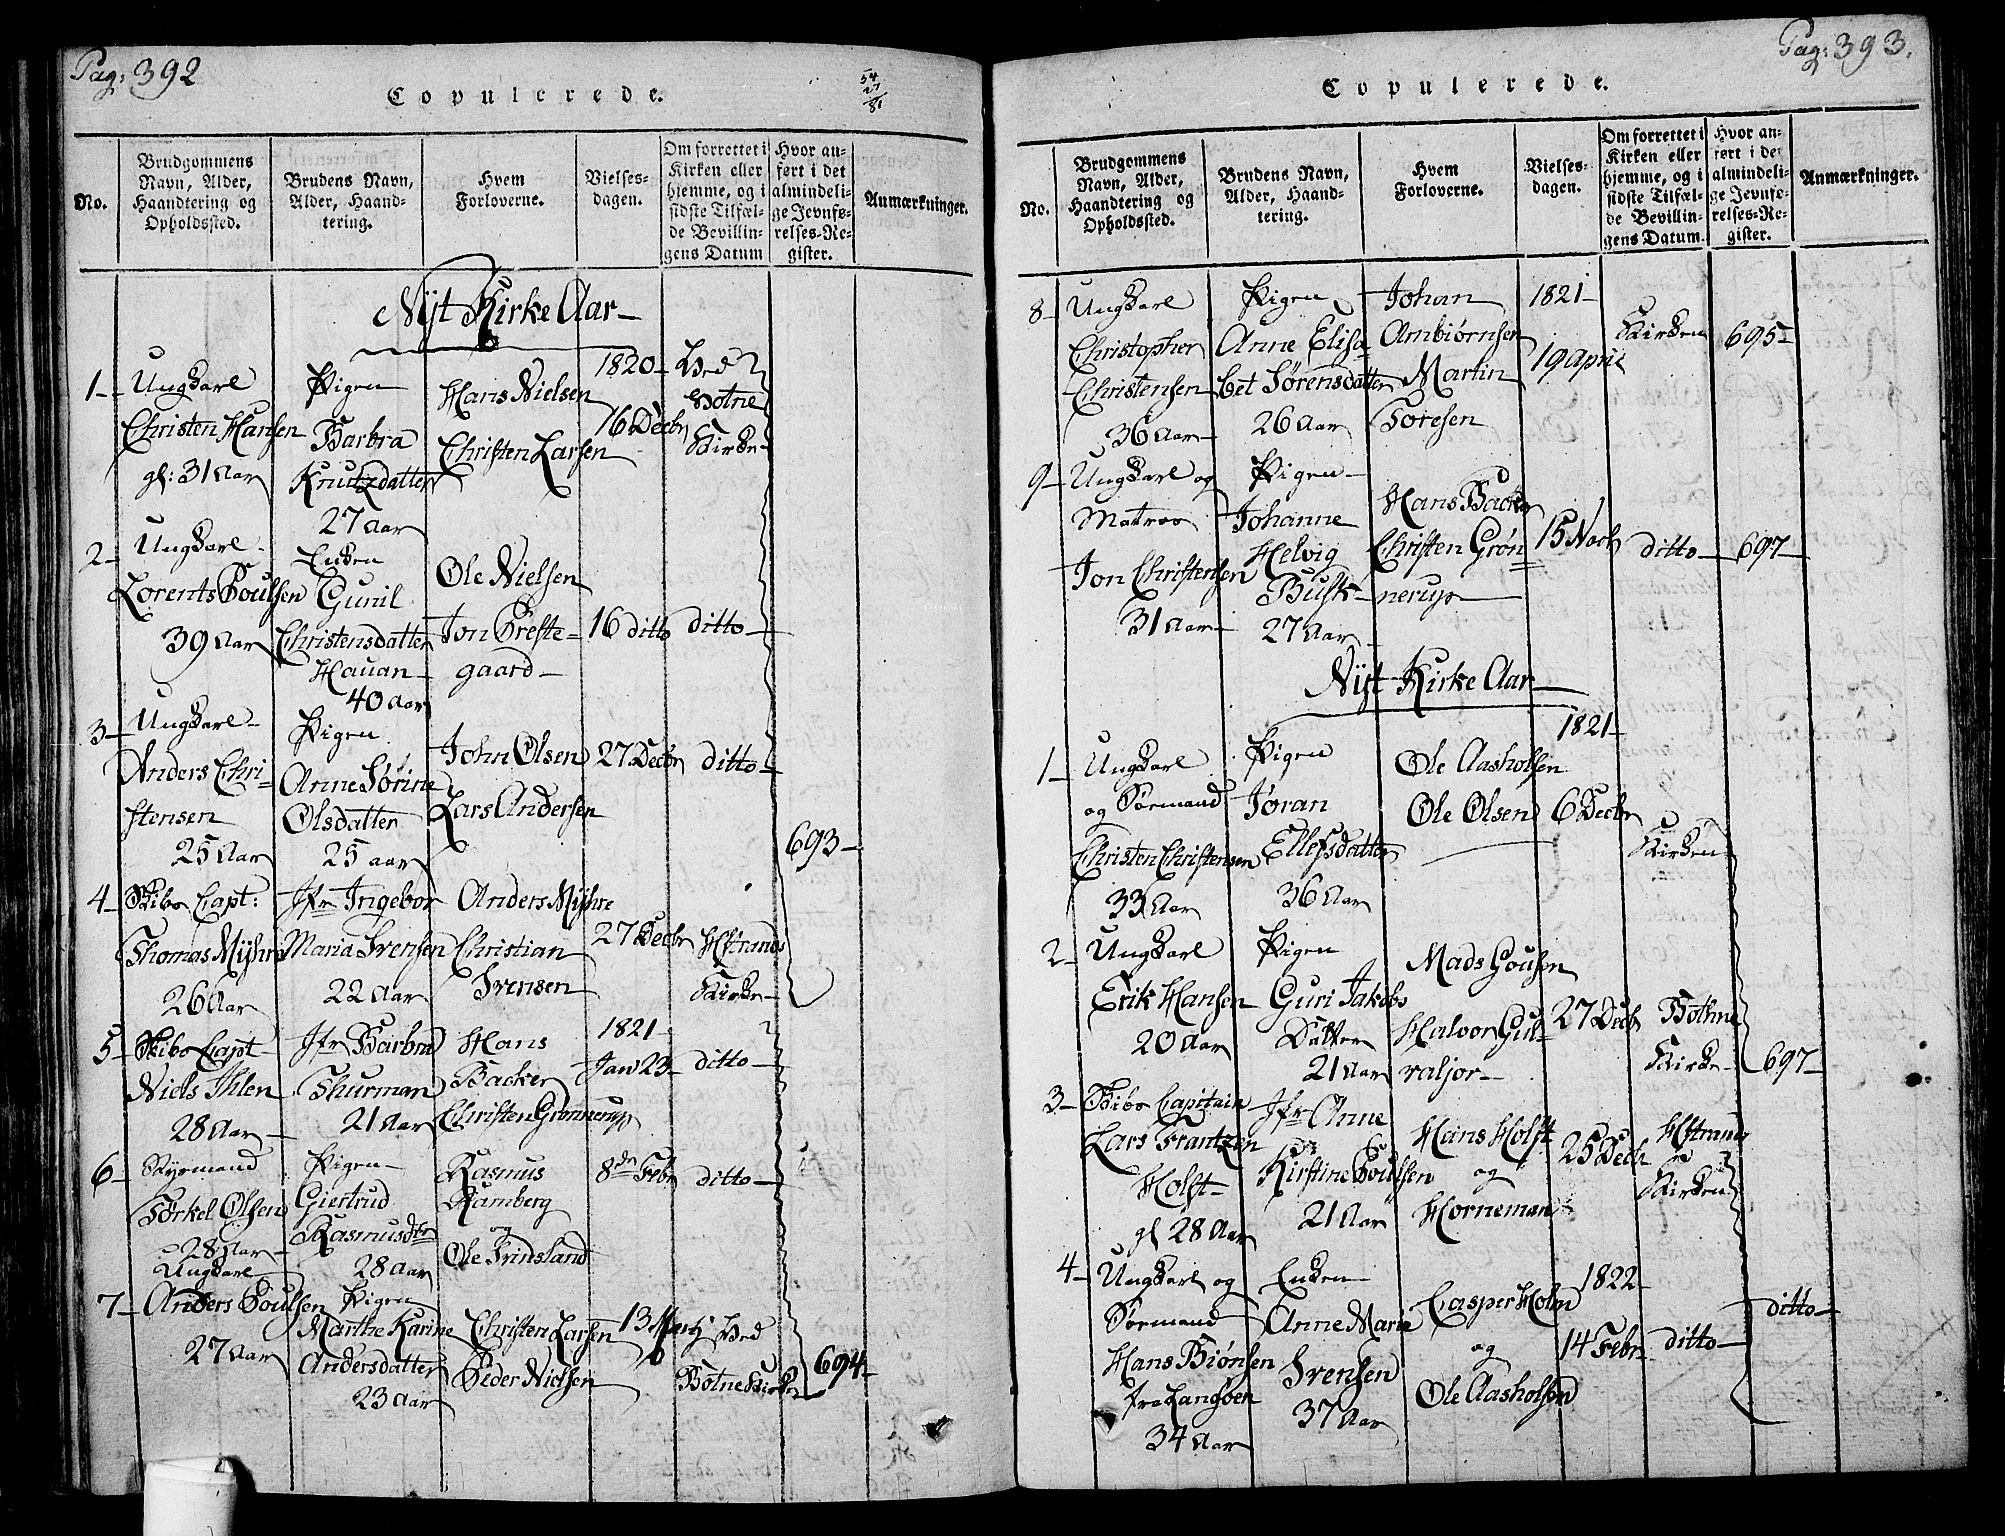 Pag: 392
Copulerede.
54
27
81
No.
Brudgommens
Navn, Alder,
Haandtering og
Opholdssted.
Brudens Navn,
Alder, Haand-
tering.
Hvem
Forloverne.
Vielses-
dagen.
Om forrettet i
Kirken eller
hjemme, og i
sidste Tilfæl-
de Bevillin-
gens Datum
Hvor an-
ført i det
almindeli-
ge Jevnfø-
relses-Re-
gister.
Anmærkninger.
Nyt Kirke Aar
1-
Ungkarl
Christen Hansen
gl: 31 Aar
Pigen
Barbra
Knutzdatter
27 Aar
Hans Nielsen
Christen Larsen
1820-
16 Decbr
Ved
Botne
Kirke-
2-
Ungkarl
Lorents Poulsen
39 Aar
Enken
Gunil
Christensdatter
Hauan
40 Aar
Ole Nielsen
Jon Preste-
gaard-
16 ditto
ditto-
3-
Ungkarl-
Anders Chri-
stensen
25 Aar
Pigen
Anne Sørine
Olsdatter
25 aar
John Olsen
Lars Andersen
27 Decbr
ditto-
693-
4-
Skibs Capt:
Thomas Myhre
26 Aar
Jfr Ingebor
Maria Svensen
22 Aar
Anders Myhre
Christian
Svensen
27 Decbr
Hstrands
Kirke-
5-
Skibs Capt
Niels Ihlen
28 Aar-
Jfr Barbra
Thurman
21 Aar
Hans
Backer
Christen Grønnerup
1821-
Jan 23-
ditto-
6-
Styrmand
Torkel Olsen
28 Aar-
Pigen-
Giertrud
Rasmusdtr
28 Aar
Rasmus
Ramberg
og
Ole Frinsland
8de Febr
ditto-
7-
Ungkarl
Anders Poulsen
27 Aar
Pigen
Marthe Karine
Andersdatter
23 Aar
Christen Larsen
Peder Nielsen
13 Martz
Ved
Botne Kirke
694-
Pag: 393.
Copulerede.
No.
Brudgommens
Navn, Alder,
Haandtering og
Opholdssted.
Brudens Navn,
Alder, Haand-
tering.
Hvem
Forloverne.
Vielses-
dagen.
Om forrettet i
Kirken eller
hjemme, og i
sidste Tilfæl-
de Bevillin-
gens Datum.
Hvor an-
ført i det
almindeli-
ge Jevnfø-
relses-Re-
gister.
Anmærkninger.
8-
Ungkarl
Christopher
Christensen
36 Aar-
Pigen
Anne Elisa-
bet Sørensdatter
26 Aar
Johan
Ambiørnsen
Martin
Toresen
1821-
19 April
Kirken
695-
9-
Ungkarl og
Matros
Jon Christensen
31 Aar-
Pigen-
Johanne
Helvig
Busk-
27 Aar
Hans Backer
Christen Grøn=
nerup
15 Nov
ditto-
697-
Nyt Kirke Aar
1-
Ungkarl
og Sørmand
Christen Christensen
33 Aar
Pigen
Jøran
Ellefsdatter
36 Aar
Ole Aasholsen
Ole Olsen
1821-
6 Decbr
Kirken
2-
Ungkarl
Erik Hansen
20 Aar
Pigen
Guri Jakobs
Datter
21 Aar
Mads
Halvor
27 Decb
Bothne
Kirke-
697-
3-
Skibs Capitain
Lars Frantzen
Holst-
gl 28 Aar
Jfr Anne
Kirstine Poulsen
21 Aar
Hans Holst
og
Horneman
25 Decb
Hstrands
Kirken
4-
Ungkarl og
Sørmand
Hans Biønsen
fra Langøen
34 Aar
Enken-
Anne Marie
Svensen
37 Aar
Casper Holm
og
Ole Aasholsen
1822-
14 Febr
ditto-
ditto-